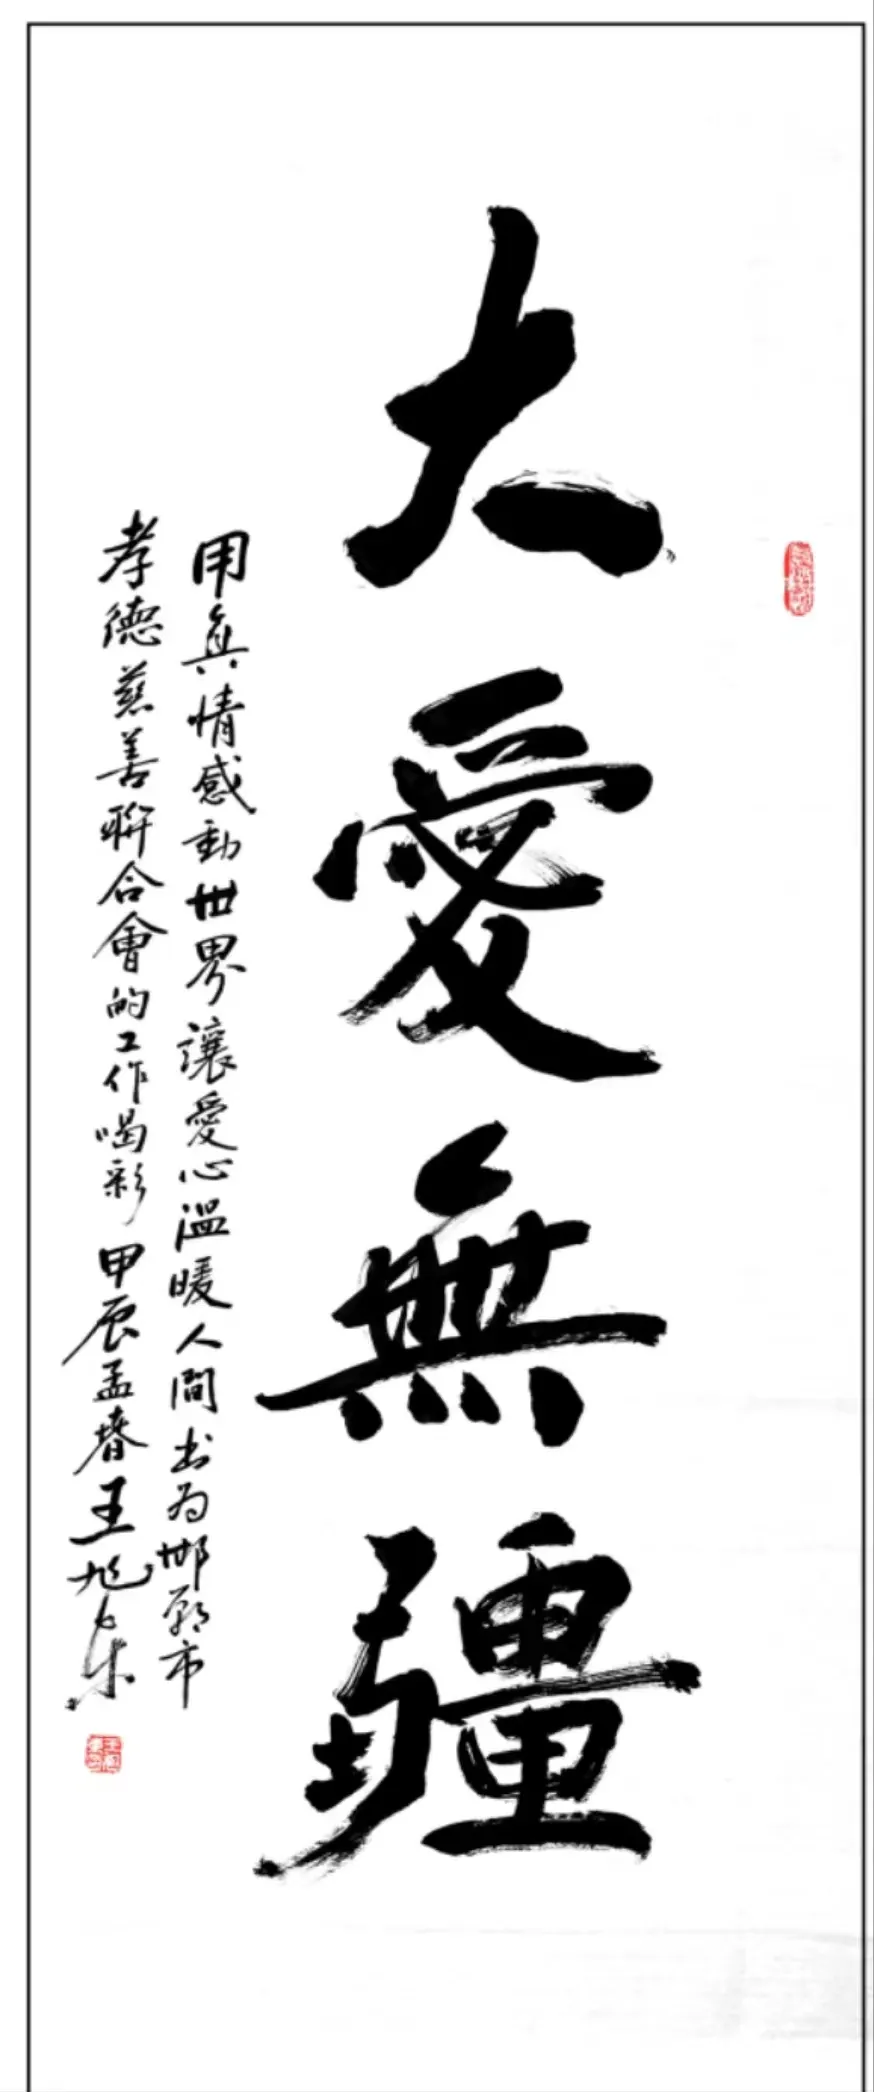 大愛無疆
用真情感動世界讓愛心溫暖人間书为邯郸市
孝德慈善聯合會的工作喝彩 甲辰孟春王旭东